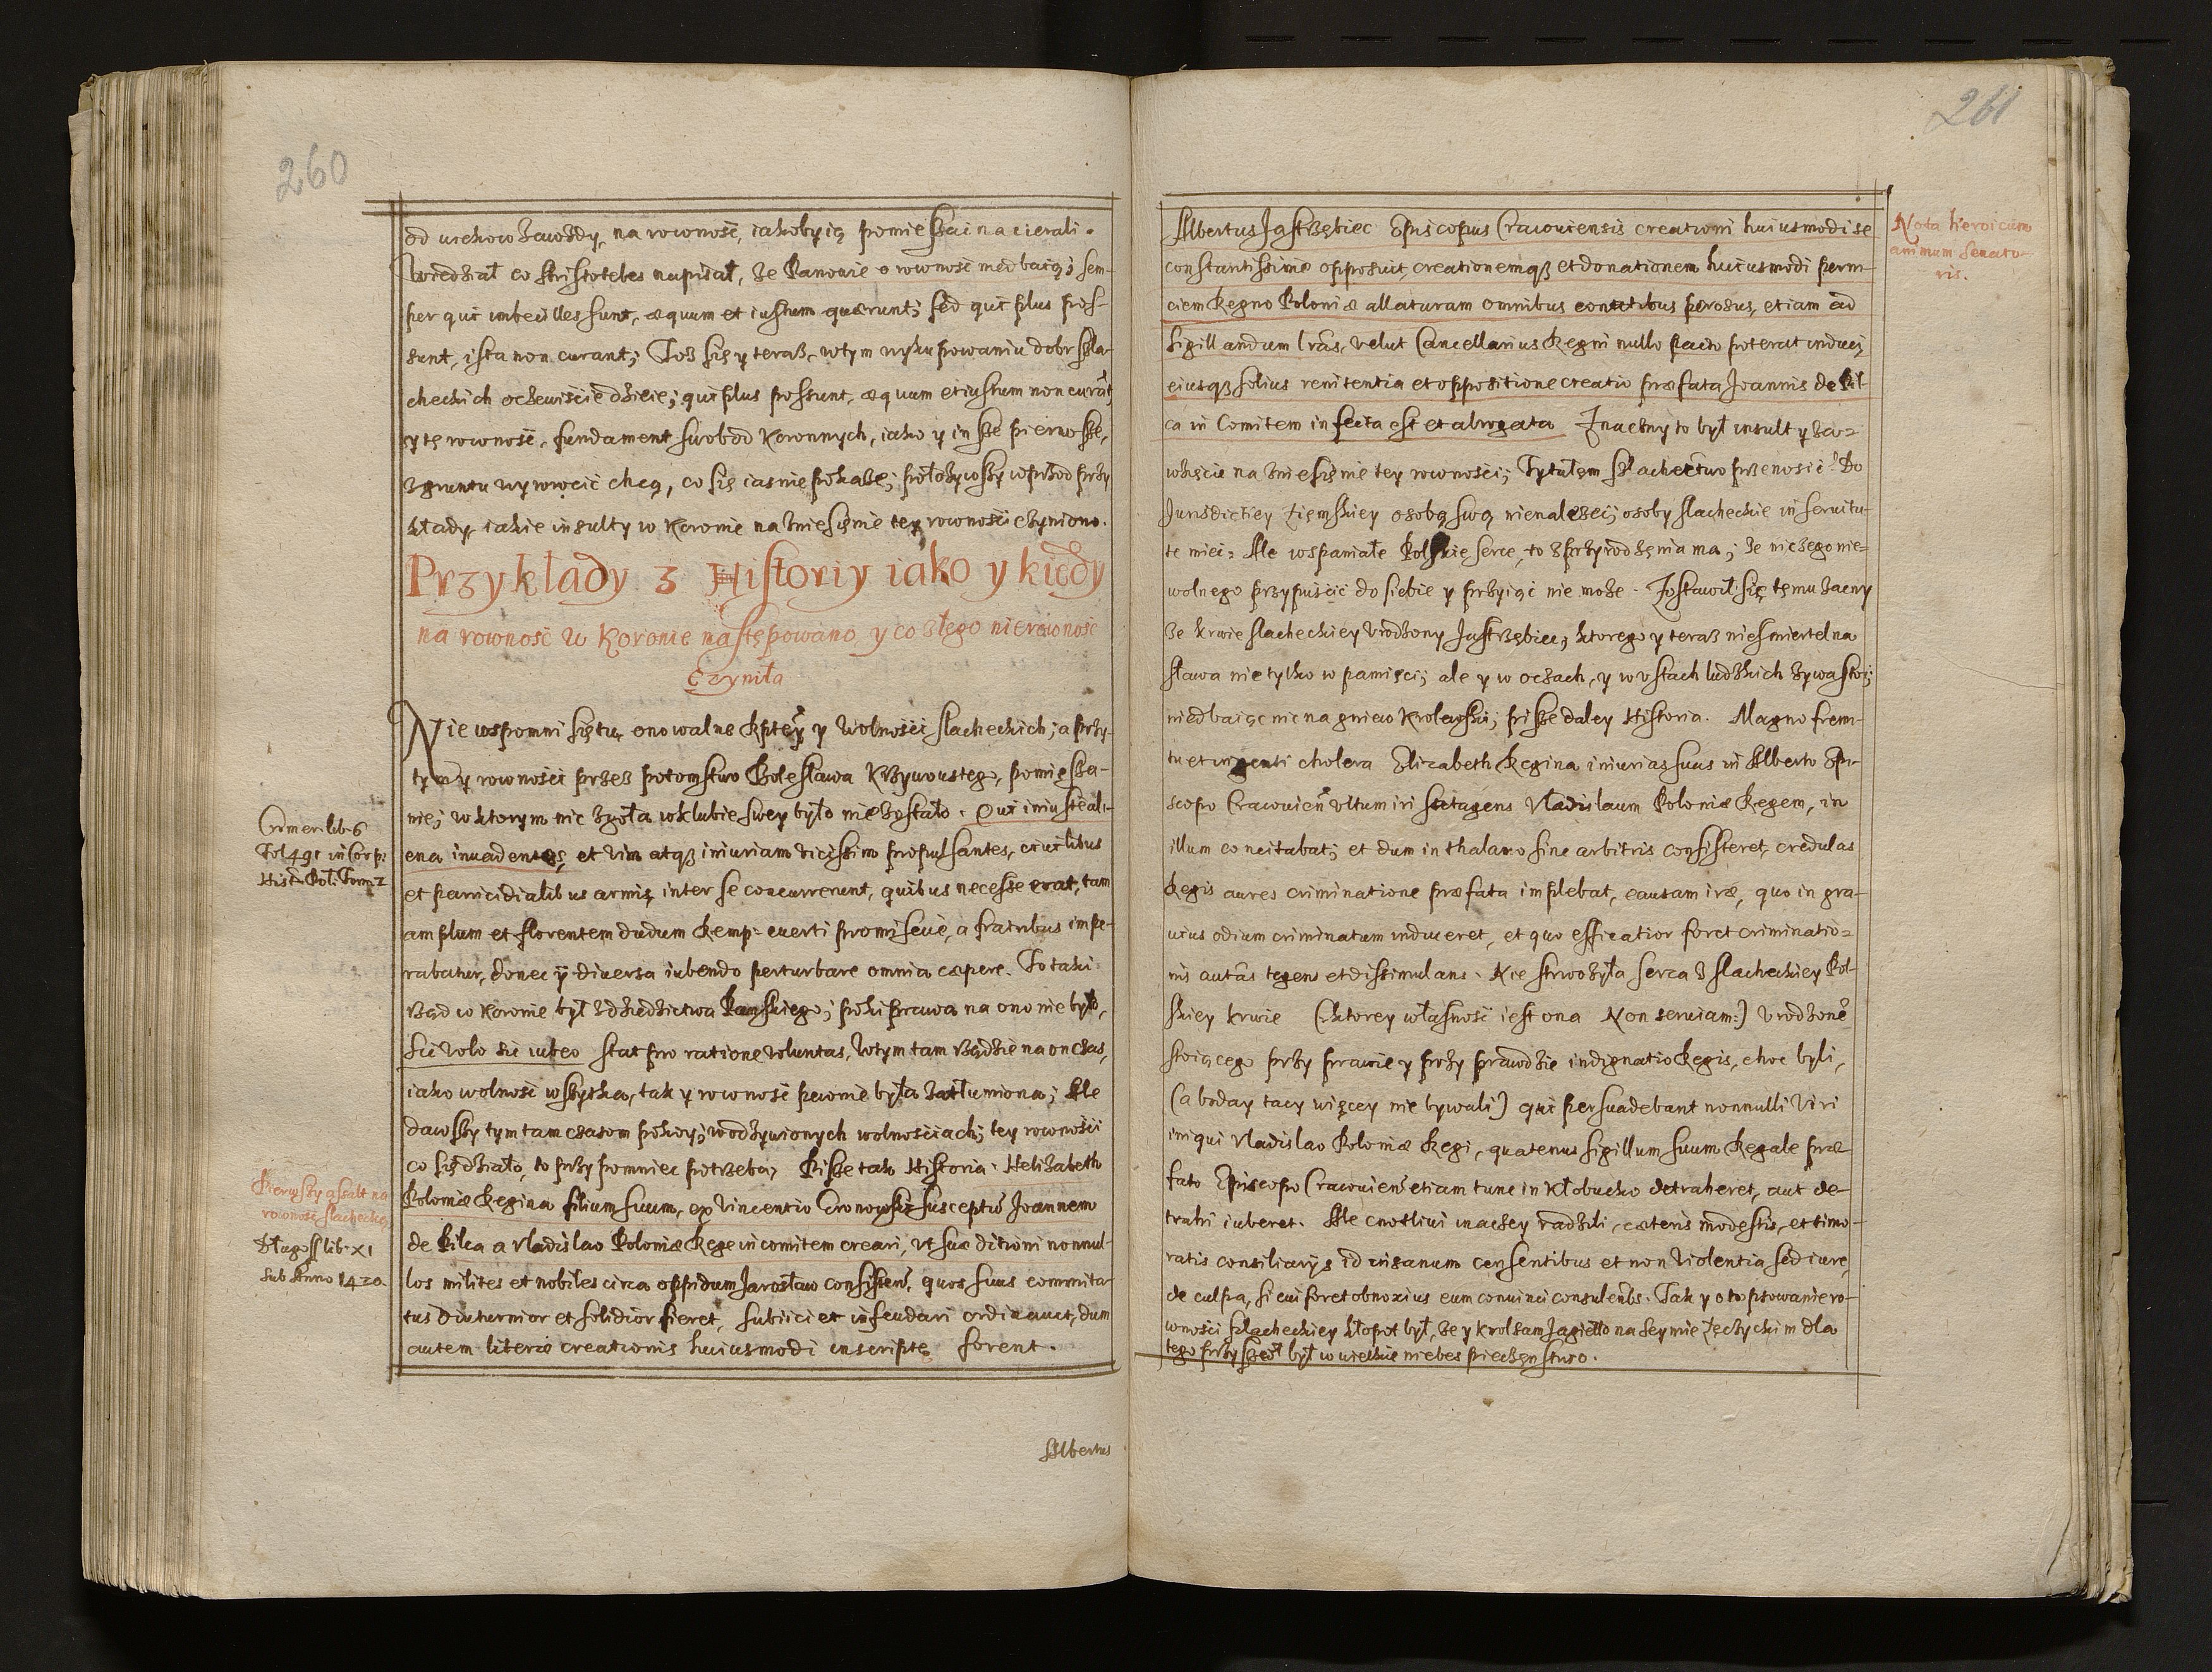 260
od wiekow zawżdy, na rowność, iakoby ią pomieszai nacierali.
Wiedział co Aristoteles napisał, że Panowie o rowność niedbaią; sem-
per qui imbecilles sunt, æquum et iustum quærunt; sed qui plus pos-
sunt, ista non curant; Toż się y teraz, w tym wykupowaniu dobr szla-
checkich oczewiście dzieie; qui plus possunt, æquum et iustum non curāt,
y tę rowność, fundament swobod Koronnych, iako y insze pierwsze,
z gruntu wywrocić chcą, co się iasnie pokaże; położywszy wprzod przy
kłady, iakie insulty w Koronie na zniesięnie tey rowności czyniono.
Przykłady z Historiy iako y kiedy
na rowność w Koronie następowano y co złego nierowność
Czyniła
Nie wspomni się tu, ono walne y Wolności slacheckich; a przy
tym y rowności przez potomstwo Bolesława Krzywoustego, pomiesza-
nie; w ktorym nic zgoła w klubie swey było niezostało. Qui iniuste ali-
ena inuadentes, et vim atqȝ iniuriam vicissim propulsantes, ciuilibus
et parricidialibus armis, inter se concurrerunt, quibus necesse erat, tam
amplum et florentem dudum Remp: euerti promiscue, a fratribus impe-
rabatur, donec ÿ diuersa iubendo perturbare omnia cæpere. To taki
rząd w Koronie był z dziedzictwa Pańskiego; poki prawa na ono nie było,
Sic volo sic iubeo stat pro ratione voluntas, w tym tam rządzie na on czas,
iako wolność wszytka, tak y rowność pewnie była zatłumiona; Ale
dawszy tym tam czasom pokoy; w odżywionych wolnościach; tey rowności
co się działo, to przypomniec potrzeba, Pisze tak Historia. Helizabeth
Poloniæ Regina filium suum, ex Vincentio Granowski susceptū Joannem
de Pilca a Vladislao Poloniæ Rege in comitem creari, vt suæ ditioni nonnul-
los milites et nobiles circa oppidum Jarosław consisten̄, quos suus commita-
tus diuturnior et solidior fieret, subiici et infeudari ordinauit, dum
autem literæ creationis huiusmodi inscriptę forent.
Albertus
Cromer lib: 6
Fol 491 in Corp:
Hist: Pol: Tom: 2
Pierwszy assalt na
rowność slachecką
Długoss lib: XI
sub Anno 1420.
261
Albertus Jastrzębiec Episcopus Cracouiensis creationi huiusmodi se
constantissime opposuit, creationemqȝ et donationem huiusmodi perni-
ciem Regno Poloniæ allaturam omnibus conatibus perosus, etiam ad
sigillandum lrās, velut Cancellarius Regni nullo pacto poterat induci,
eiusqȝ solius renitentia et oppositione creatio præfata Joannis de Pil-
ca in Comitem infecta est et abrogata Znaczny to był insult y zaw-
wzięcie na zniesięnie tey rowności; Tytułem szlachectwo przenosić? Do
Jurisdictiey Ziemskiey osobą swą nienależeć; osoby slacheckie in seruitu-
te mieć. Ale wspaniałe Polskie serce, to z przyrodzęnia ma; że niczego nie-
wolnego przypuścić do siebie y przyiąć nie może. Zostawił się tęmu zacny
że krwie slacheckiey vrodzony Jastrzębiec; ktorego y teraz niesmiertelna
sława nie tylko w pamięci; ale y w oczach, y w vstach ludzkich zywa stoi;
niedbaiąc nic na gniew Krolewski; pisze daley Historia. Magno fremi-
tu et ingenti cholera Elizabeth Regina iniurias suas in Alberto Epi-
scopo Cracouień vltum iri satagens Vladislaum Poloniæ Regem, in
illum concitabat; et dum in thalamo sine arbitris consisteret, credulas
Regis aures criminatione præfata implebat, causam iræ, quo in gra-
uius odium criminatum induceret, et quo efficatior foret criminatio-
nis autās tegens et dissimulans. Nie strwożyła serca z slacheckiey Pol-
skiey krwie (ktorey własność iest ona Non seruiam:) vrodzone⁰
stoiącego przy prawie y przy prawdzie indignatio Regis, choc byli,
(a boday tacy więcey nie bywali) qui persuadebant nonnulli viri
iniqui Vladislao Poloniæ Regi, quatenus sigillum suum Regale præ
fato Episcopo Cracouień etiam tunc in Kłobucko detraheret, aut de-
trahi iuberet. Ale cnotliwi inaczey radzili, cæteris modestis, et timo-
ratis consiliarijs id insanum censentibus et non violentia sed iure,
de culpa, si cui foret obnoxius eum conuinci consulentbs. Tak y o to psowanie ro-
wności szlacheckiey kłopot był, że y krol sam Jagiełło na Seymie Łęczyckim dla
tego przyszedł był w wielkie niebespieczęnstwo.
Nota heroicum
animum Senato-
ris.